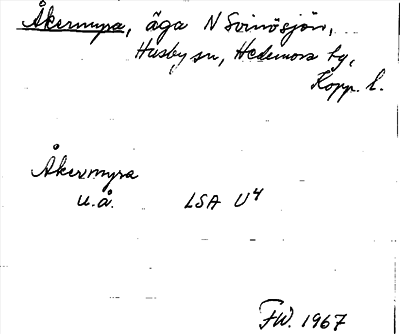 Åkermyra, äga N Svinösjön,
Husby sn, Hedemora tg,
Kopp. l.
Åkermyra
u.å. LSA U4
FW. 1967